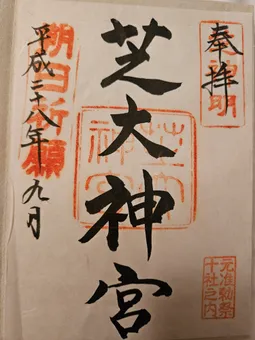 奉拝
芝神明
元准勅祭
十社之内
芝大神宮
芝大
神宮
朔日祈願
平成二十八年九月